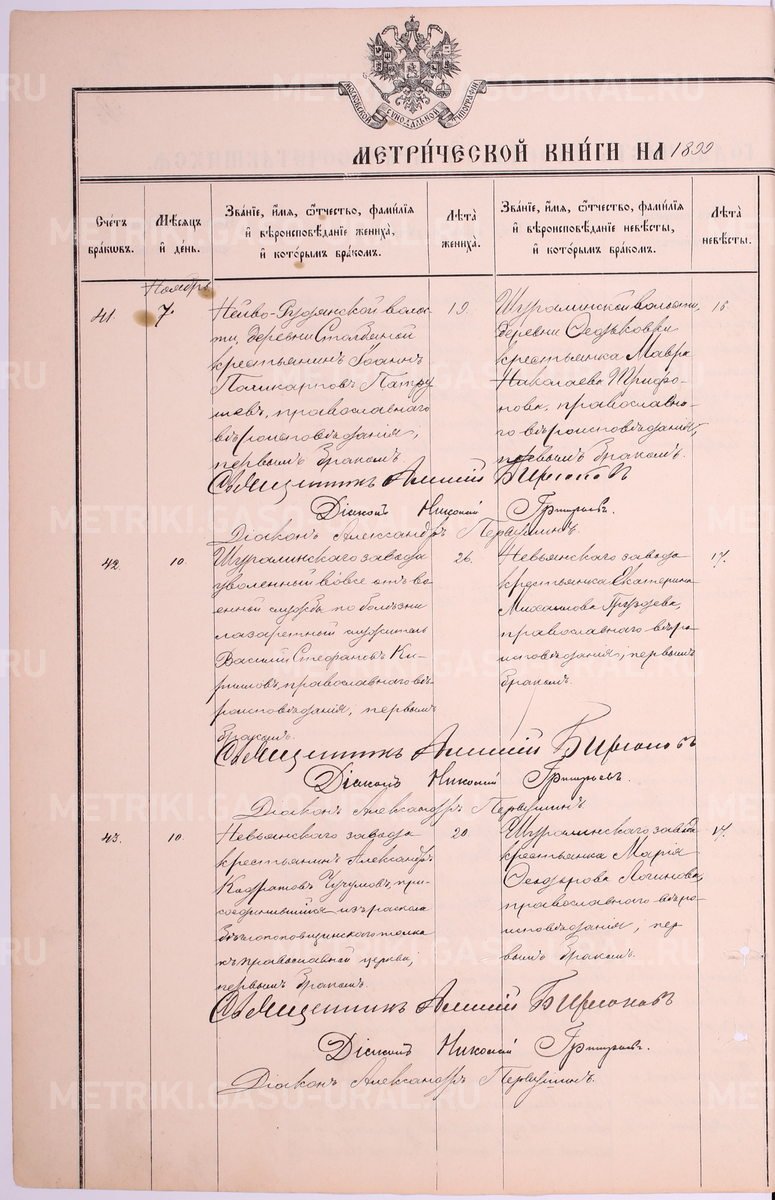 МОСКОВСКОЙ СѴНОДАЛЬНОЙ ТИПОГРАФІИ
МЕТРИ́ЧЕСКОЙ КНИ́ГИ НА 1899
Сче́тъ бра́кѡвъ.
Мѣ́сѧцъ и҆ де́нь.
Зва́нїе, и҆́мѧ, ѻ҆́тчество, фами́лїѧ и҆ вѣроисповѣ́данїе жениха̀, и҆ кото́рымъ бра́комъ.
Лѣ́та жениха̀.
Зва́нїе, и҆́мѧ, ѻ҆́тчество, фами́лїѧ и҆ вѣроисповѣ́данїе невѣ́сты, и҆ кото́рымъ бра́комъ.
Лѣ́та невѣ́сты.
Ноябрь
41. 7.
Нейво-Рудянской волос
ти, деревни Столбяной
крестьянинъ Іоаннъ
Поликарповъ Патру
шевъ, православнаго
вѣроисповѣданія,
первымъ бракомъ.
19.
Шуралинской волости,
деревни Ѳедьковки
крестьянка Мавра
Николаева Трифо-
нова, православна-
го вѣроисповѣданія,
первымъ бракомъ.
Священникъ Алексій Бирюковъ
Діаконъ Никонъ Григорьевъ.
Діаконъ Александръ Первушинъ.
42. 10.
Шуралинскаго завода
уволенный вовсе отъ во
енной службы по болѣзни
лазаретный служитель
Василій Стефановъ Ки-
рилловъ, православнаго вѣ-
роисповѣданія, первымъ
бракомъ.
26.
Невьянскаго завода
крестьянка Екатерина
Михаилова Груздева,
православнаго вѣро
исповѣданія, первымъ
бракомъ.
17.
Священникъ Алексій Бирюковъ
Діаконъ Григорьевъ.
Діаконъ Александръ Первушинъ.
43. 10.
Невьянскаго завода
крестьянинъ Александръ
при-
соединившійся изъ раскола
бѣглопоповщинскаго толка
къ православной церкви,
первымъ бракомъ.
20.
Шуралинскаго завода
крестьянка Марія
Ѳеодорова Логинова,
православнаго вѣро-
исповѣданія, пер
вымъ бракомъ.
17.
Священникъ Алексій Бирюковъ
Діаконъ Григорьевъ.
Діаконъ Александръ Первушинъ.
METRIKI.GASO-URAL.RU